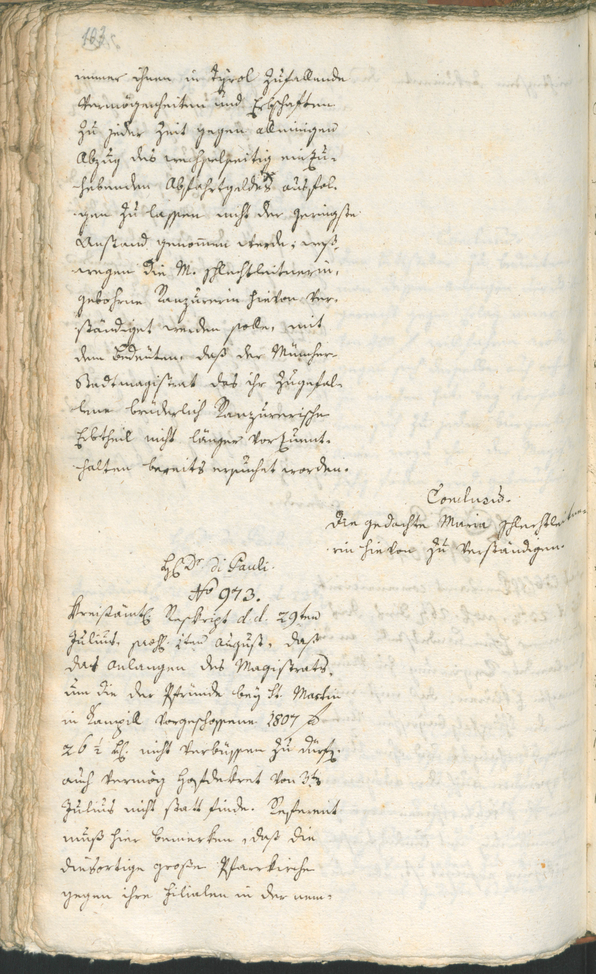 immer ihnen in Tyrol zufallende
Vermögenheiten und Erbschaften
zu jeder Zeit gegen alleinigen
Abzug des wechselseitig einzu-
hebenden Abfahrtgeldes ausfol-
gen zu lassen nicht der geringste
Anstand genommen werde, weß-
wegen die M. Schlechtleitnerin,
gebohrne Ranzurerin hievon ver-
ständiget werden solle, mit
dem Bedeuten, daß der Münchner
Stadtmagistrat das ihr zugefal-
lene brüderlich Ranzurerische
Erbtheil nicht länger vorzuent-
halten bereits ersuchet worden.
Conclusum.
Die gedachte Maria Schlechtleitne-
rin hievon zu verständigen.
Hr. Dr. di Pauli.
No 973.
Kreisämtl. Reskript d.d. 29ten
Julius, 1ten August, daß
das Anlangen des Magistrats,
um die der Pfründe bey St. Martin
in Kampill vorgeschossene 1807 f
26 ½ kr. nicht verbüssen zu dürfen
auch vermög Hofdekret von 3t
Julius nicht statt finde. Referent
muß hier bemerken, daß die
diesortige große Pfarrkirche
gegen ihre Filialen in der nem-